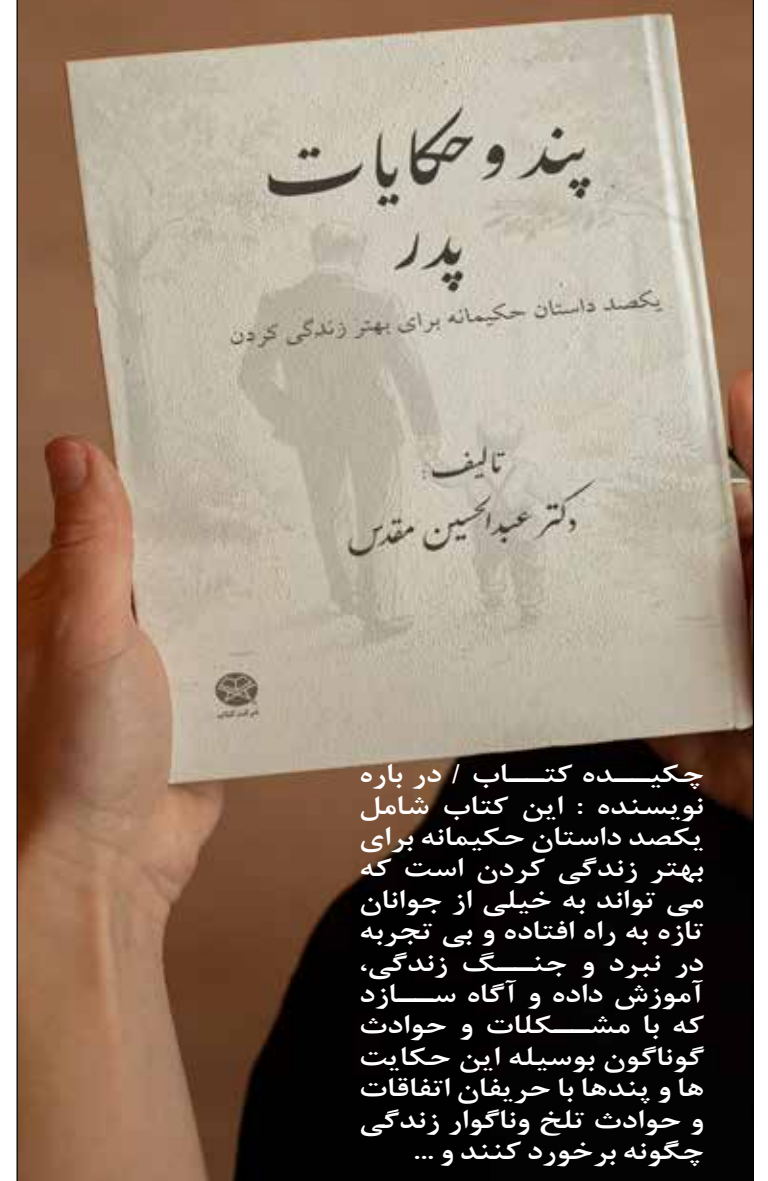 پند و حکایات
پدر
یکصد داستان حکیمانه برای بهتر زندگی کردن
تالیف:
دکتر عبدالحسین مقدس
شرکت کتاب
چکیده کتاب / در باره
نویسنده : این کتاب شامل
یکصد داستان حکیمانه برای
بهتر زندگی کردن است که
می تواند به خیلی از جوانان
تازه به راه افتاده و بی تجربه
در نبرد و جنگ زندگی،
آموزش داده و آگاه سازد
که با مشکلات و حوادث
گوناگون بوسیله این حکایت
ها و پندها با حریفان اتفاقات
و حوادث تلخ وناگوار زندگی
چگونه برخورد کنند و ...